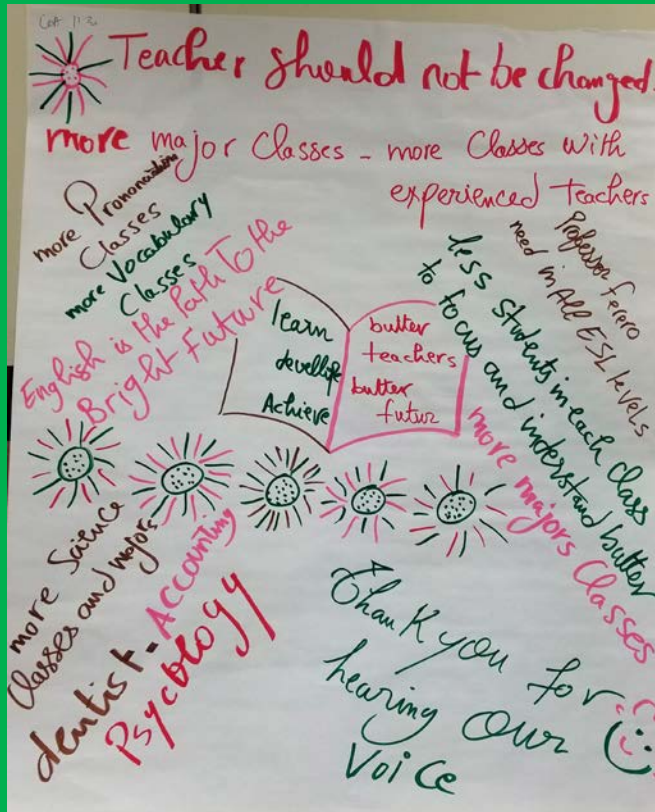 Teacher should not be changed.
more major Classes - more Classes with
experienced teachers
more Prononciation
Classes
more Vocabulary
Classes
English is the Path To the
Bright Future
learn
devellope
Achieve
butter
teachers
butter
futur
Professor Feraro
need in All ESL levels
less students in each class
to focus and inderstand butter
more majors Classes
more Science
Classes and majors
dentist - Accounting
Psycology
Thank you for
hearing our
Voice